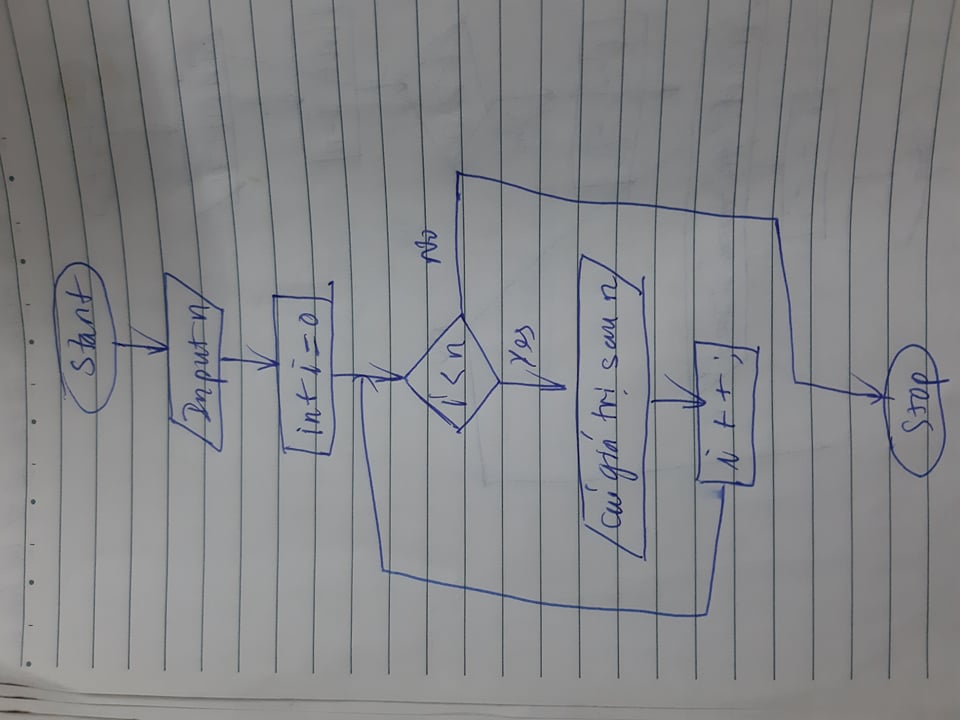 Start
Input n
int i = 0
i < n
No
Yes
giá trị sau n
i + + ;
Stop